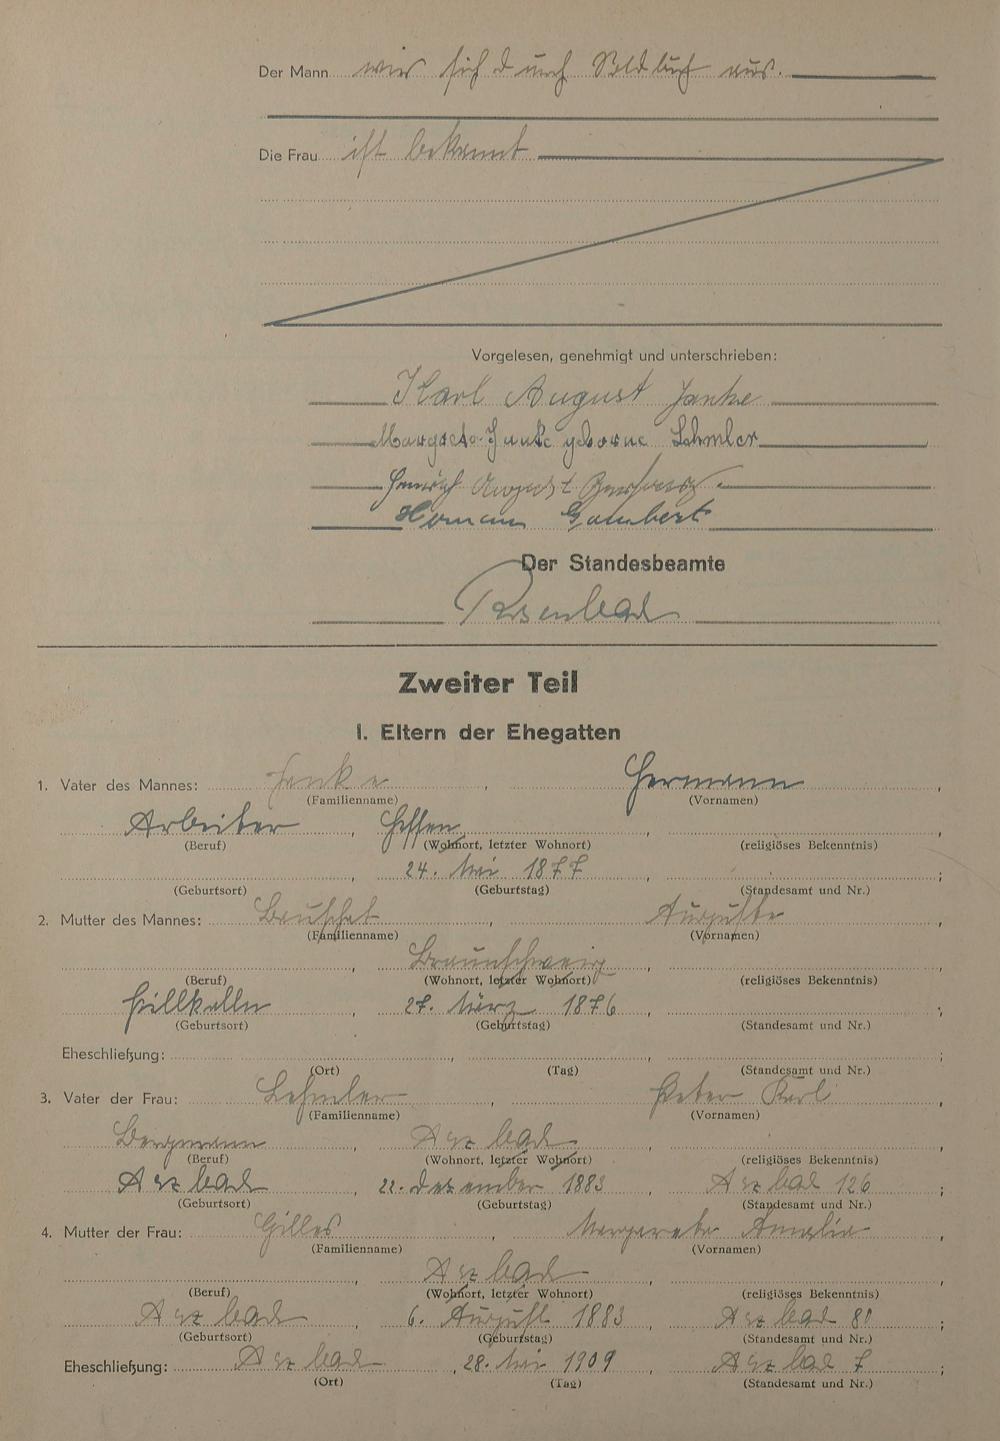 Der Mann wies sich durch Soldbuch aus.
Die Frau ist bekannt
Vorgelesen, genehmigt und unterschrieben:
Karl August Janke
Margarete Janke geborene Lehmler
Heinrich August
Hermann Gombert
Der Standesbeamte
Zweiter Teil
I. Eltern der Ehegatten
1. Vater des Mannes: Janke, Hermann,
(Familienname) (Vornamen)
Arbeiter, Hessen,
(Beruf) (Wohnort, letzter Wohnort) (religiöses Bekenntnis)
, 24. Mai 1877, ;
(Geburtsort) (Geburtstag) (Standesamt und Nr.)
2. Mutter des Mannes: Bruschat, Auguste,
(Familienname) (Vornamen)
, Braunschweig,
(Beruf) (Wohnort, letzter Wohnort) (religiöses Bekenntnis)
Pillkallen, 27. März 1876, ;
(Geburtsort) (Geburtstag) (Standesamt und Nr.)
Eheschließung: , , ;
(Ort) (Tag) (Standesamt und Nr.)
3. Vater der Frau: Lehmler, Peter Karl,
(Familienname) (Vornamen)
Bergmann, Arzbach,
(Beruf) (Wohnort, letzter Wohnort) (religiöses Bekenntnis)
Arzbach, 22. Dezember 1883, Arzbach 126;
(Geburtsort) (Geburtstag) (Standesamt und Nr.)
4. Mutter der Frau: Gilles, Margarete Amalia,
(Familienname) (Vornamen)
, Arzbach,
(Beruf) (Wohnort, letzter Wohnort) (religiöses Bekenntnis)
Arzbach, 6. August 1883, Arzbach 81;
(Geburtsort) (Geburtstag) (Standesamt und Nr.)
Eheschließung: Arzbach, 28. Mai 1909, Arzbach 7;
(Ort) (Tag) (Standesamt und Nr.)